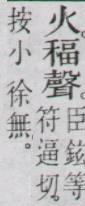 火稫聲。臣鉉等
符逼切。
按小徐無。